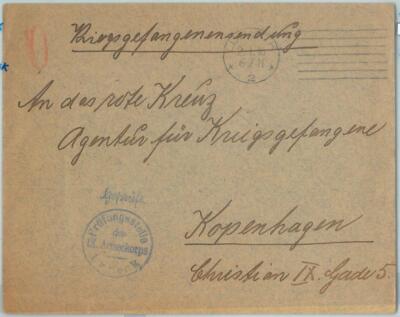 Kriegsgefangenensendung
An das rote Kreuz
Agentur für Kriegsgefangene
Geprüft
Prüfungsstelle
des
IX. Armeekorps
Kopenhagen
Christian IX. Gade 5.